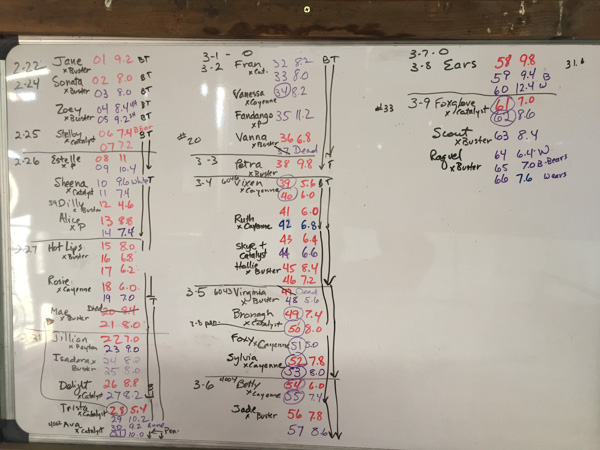 2-22 Jane 01 9.2 BT
x Buster
2-24 Sonata 02 8.0 BT
x Buster 03 8.0 BT
Zoey 04 8.4
x Buster 05 9.2
2-25 Shelby 06 7.4 BT
x Catalyst 07 7.2
2-26 Estelle 08 11
x P 09 10.4
Sheena 10 9.6
x Catalyst 11 7.4
Dilly 12 4.6
x Buster
Alice 13 8.8
x P 14 7.4
2-27 Hot Lips 15 8.0
x Buster 16 6.8
17 6.2
Rosie 18 6.0
x Cayenne 19 7.0
Mae Died 20 8.4
21 8.0
Jillian 22 7.0
x Peyton 23 9.0
Isadora x 24 8.0
Buster 25 8.0
Delight 26 8.8
x Catalyst 27 8.2
Trista 28 5.4
x Catalyst 29 10.2
Ava 30 9.2
x Catalyst 31 10.0 Pen
3-1 - 0 BT
3-2 Fran 32 8.2
x Cat. 33 8.0
Vanessa 34 8.2
x Cayenne
Fandango 35 11.2
x P
#20 Vanna 36 6.8
x Buster 37 Dead
3-3 Petra 38 9.8
x Buster
3-4 Vixen 39 5.6 BT
x Cayenne 40 6.0
41 6.0
Ruth 42 6.8
x Cayenne
Skye + 43 6.4
Catalyst 44 6.6
Hollie 45 8.4
x Buster 46 7.2
3-5 6043 Virginia 47 Dead
x Buster 48 5.6
Bronagh 49 7.4
x Catalyst 50 8.0
Foxy 51 5.0
x Cayenne
Sylvia 52 7.8
x Cayenne 53 8.0
3-6 Betty 54 6.0
x Cayenne 55 7.4
Jade 56 7.8
x Buster
57 8.6
3-7-0
3-8 Ears 58 9.8 31.6
59 9.4 B
60 12.4 W
#33 3-9 Foxglove 61 7.0
x Catalyst 62 8.6
Scout 63 8.4
x Buster
Raquel 64 6.4 W
x Buster 65 7.0 B-Bears
66 7.6 W ears